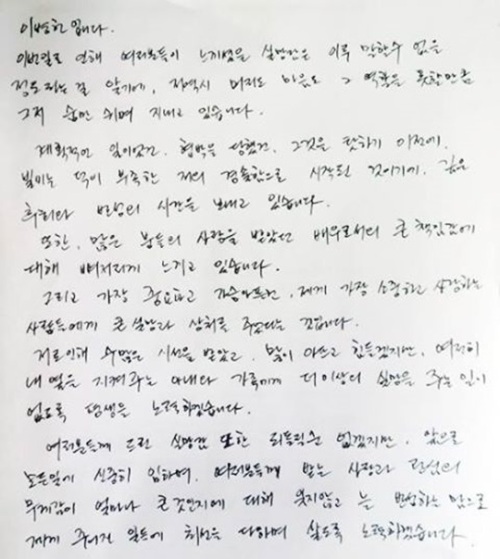 이병헌 입니다.
이번일로 인해 여러분들이 느끼셨을 실망감은 이루 말할수 없을
정도라는걸 알기에, 저역시 머리도 마음도 그 역할을 못할만큼
그저 숨만 쉬며 지내고 있습니다.
계획적인 일이었건, 협박을 당했건, 그것을 탓하기 이전에,
빌미는 덕이 부족한 저의 경솔함으로 시작된 것이기에, 깊은
후회와 반성의 시간을 보내고 있습니다.
또한, 많은 분들의 사랑을 받았던 배우로서의 큰 책임감에
대해 뼈저리게 느끼고 있습니다.
그리고 가장 중요하고 가슴아픈건, 제게 가장 소중하고 사랑하는
사람들에게 큰 실망과 상처를 주었다는 겁니다.
저로인해 수많은 시선을 받았고, 많이 아프고 힘들겠지만, 여전히
내 옆을 지켜주는 아내와 가족에게 더 이상의 실망을 주는 일이
없도록 평생을 노력하겠습니다.
여러분들께 드린 실망감 또한 되돌릴순 없겠지만, 앞으로
모든일에 신중히 임하며, 여러분들께 받는 사랑과 관심의
무게감이 얼마나 큰 것인지에 대해 잊지않고 늘 반성하는 맘으로
제게 주어진 일들에 최선을 다하며 살도록 노력하겠습니다.